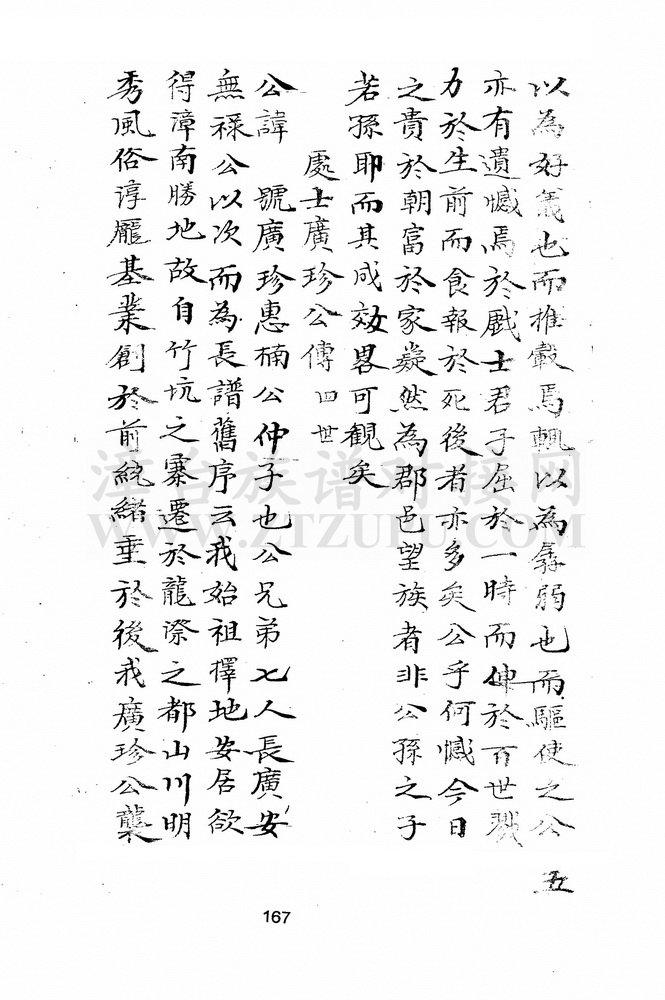 以為好義也而推轂焉輒以為孱弱也而驅使之公
亦有遺憾焉於戲士君子屈於一時而伸於百世戮
力於生前而食報於死後者亦多矣公乎何憾今日
之貴於朝富於家嶷然為郡邑望族者非公孫之子
若孫耶而其成效畧可観矣
處士廣珍公傳 四世
公諱 號廣珍惠楠公仲子也公兄弟七人長廣安
無祿公以次而為長譜舊序云我始祖擇地安居欲
得漳南勝地故自竹坑之寨遷於龍漈之都山川明
秀風俗淳龎基業創於前統緒垂於後我廣珍公襲
五
167
漳台族谱对接网
WWW.ZTZUPU.COM